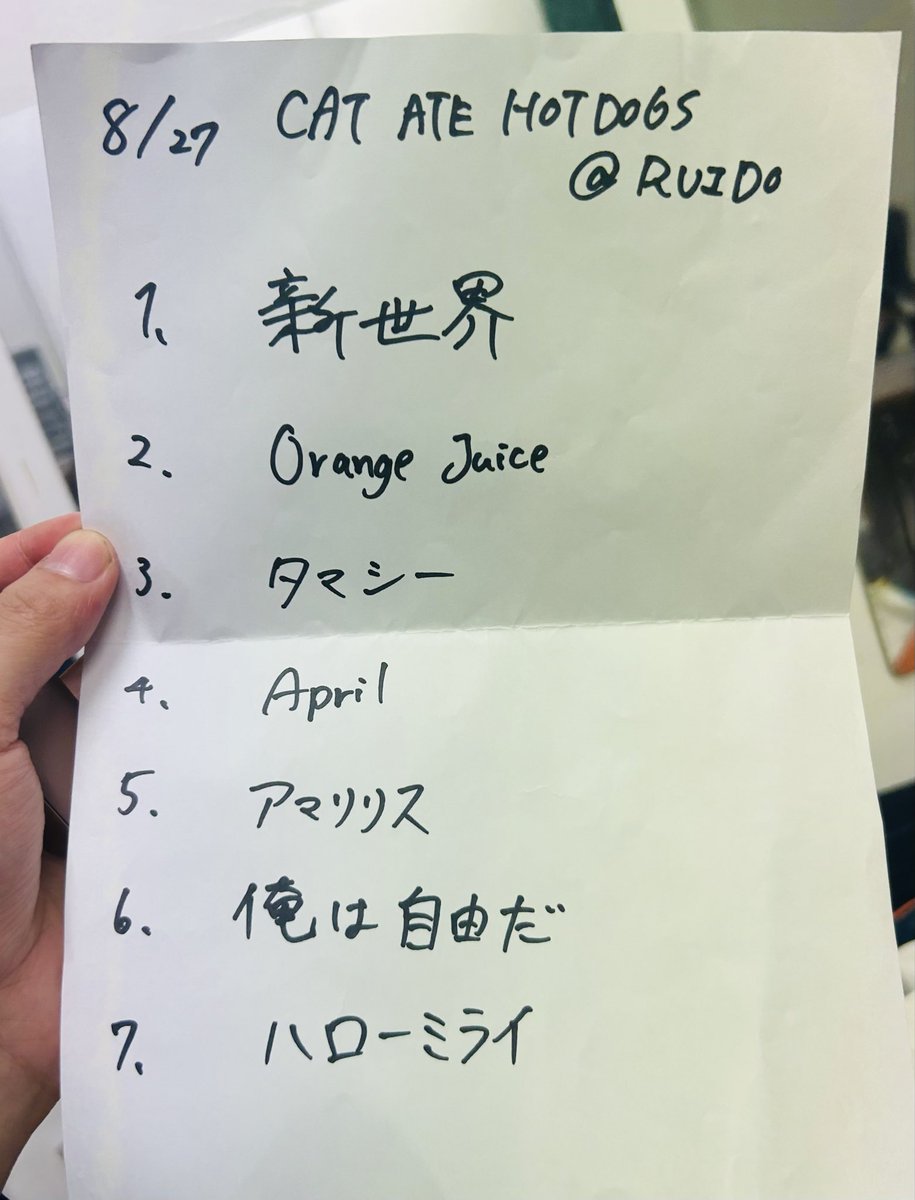 8/27 CAT ATE HOTDOGS
@ RUIDO
1. 新世界
2. Orange Juice
3. タマシー
4. April
5. アマリリス
6. 俺は自由だ
7. ハローミライ